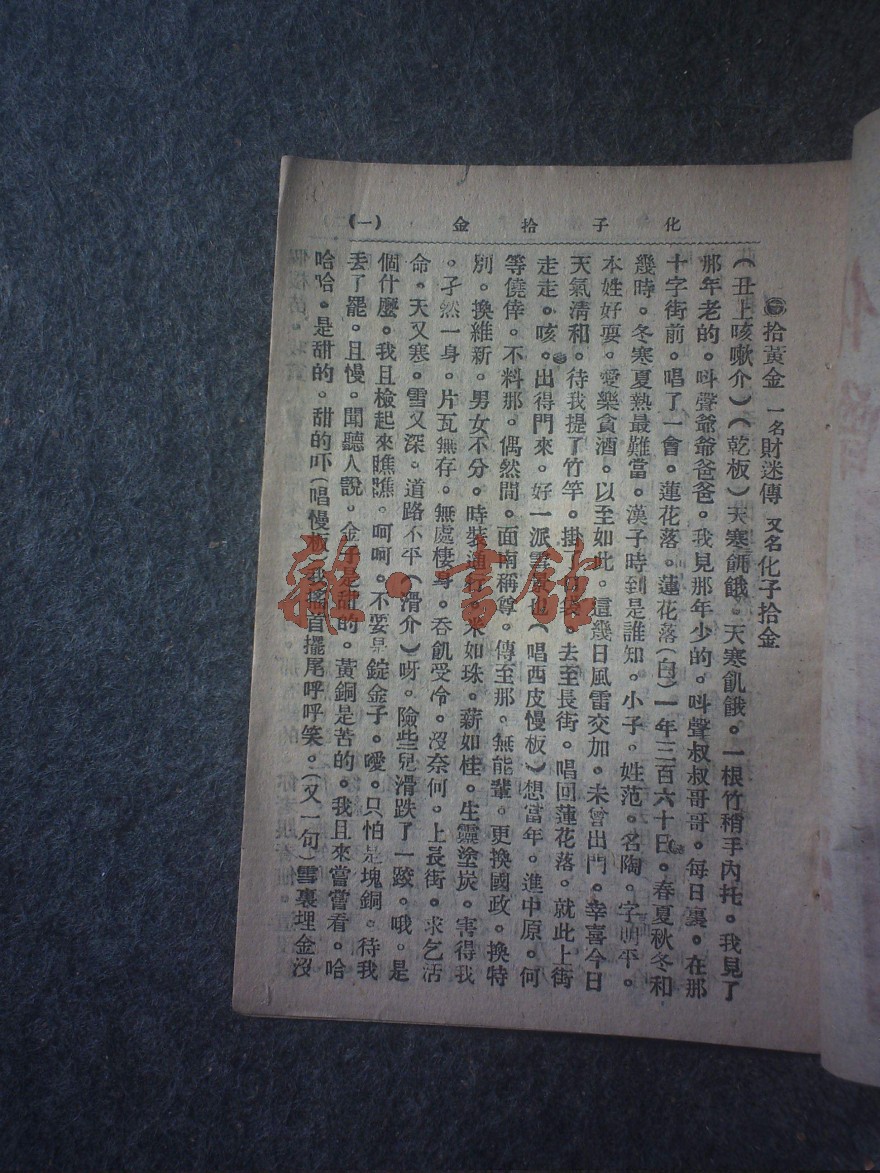 化子拾金 (一)
拾黃金 一名財迷傳 又名化子拾金
(丑上咳嗽介)(乾板)天寒飢餓。天寒飢餓。一根竹稍手內托。我見了
那年老的。呌聲爺爺爸爸。我見那年少的。呌聲叔叔哥哥。每日裏。在那
十字街前。唱了一會。蓮花落。蓮花落(白)一年三百六十日。春夏秋冬和
幾時。冬寒夏熱最難當。漢子時到是誰知。小子。姓范。名陶。字明平。
本姓好耍。愛樂貪酒。以至如此。這幾日風雷交加。未曾出門。幸喜今日
天氣清和。待我提了竹竿。掛了袋。去至長街。唱回蓮花落。就此上街
走走。咳。出得門來。好一派雪景也(唱西皮慢板)想當年。進中原。何
等僥倖。不料那。偶然間。面南稱尊。傳至那。無能輩。更換國政。換特
別。換維新。男女不分。時裝通行。米如珠。薪如桂。生靈塗炭。害得我
。孑然一身。片瓦無存。無處棲身。吞飢受冷。沒奈何。上長街。求乞活
命。天又寒。雪又深。道路不平(滑介)呀。險些兒滑跌了一跤。哦。是
個什麼。我且檢起來瞧瞧。呵呵。不要是錠金子。噯。只怕是塊銅。待我
丟了罷。且慢。聞聽人說。金子是甜的。黃銅是苦的。我且來嘗嘗看。哈
哈哈。是甜的。甜的吓(唱慢板)我搖首擺尾呼呼笑。(又一句)雪裏埋金沒
雜·書館